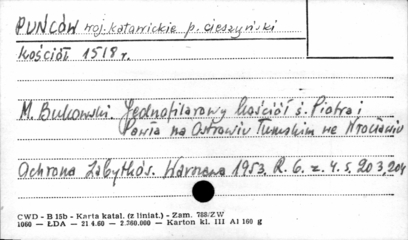 PUŃCÓW woj. katowickie p. cieszyński
Kościół 1518 r.
M. Bukowski. Jednofilarowy kościół ś. Piotra i
Pawła na Ostrowiu Tumskim we Wrocławiu
Ochrona Zabytków. Warszawa 1953. R. 6. z. 4. s. 203, 204
CWD - B 15b - Karta katal. (z liniat.) - Zam. 788/ZW
1060 — ŁDA — 21 4.60 — 2.360.000 — Karton kl. III A1 160 g